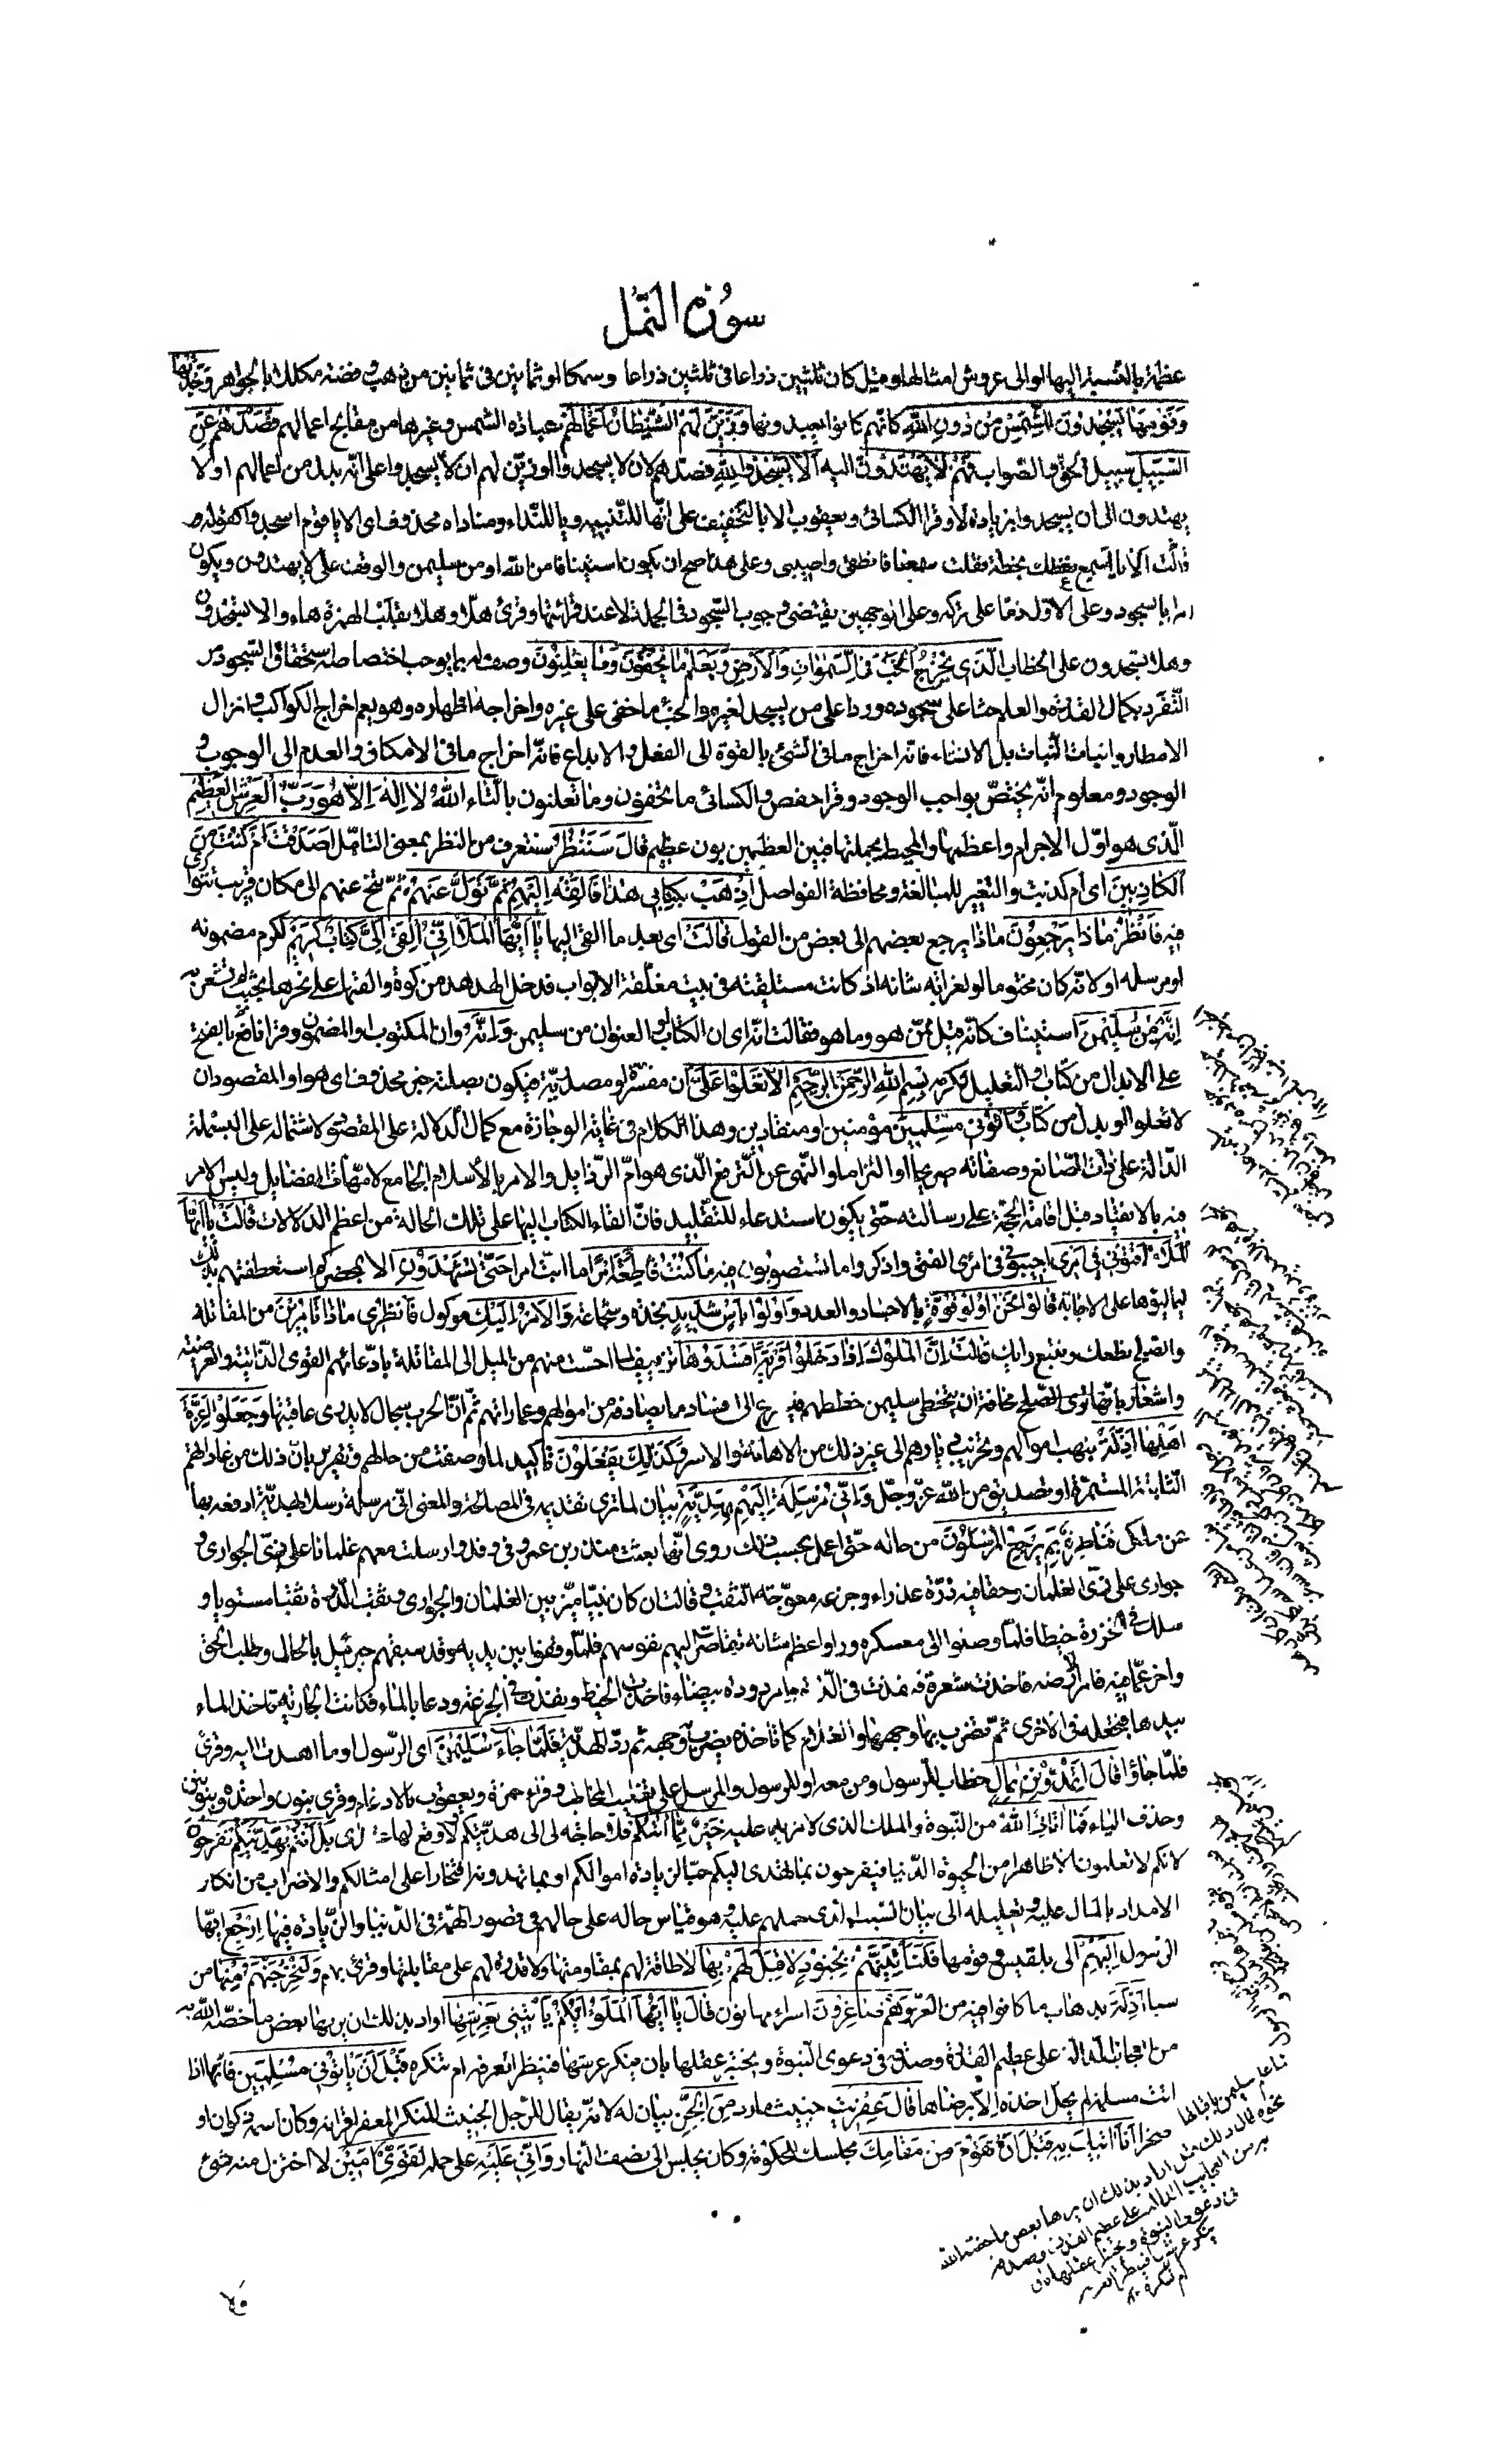 سورة النمل
عظمة بالنسبة اليها او الى عروش امثالها وقيل كان ثلثين ذراعا فى ثلثين ذراعا وسمكا او ثمانين فى ثمانين من ذهب و فضة مكللا بالجواهر وَجَدْتُهَا
وَقَوْمَهَا يَسْجُدُونَ لِلشَّمْسِ مِنْ دُونِ اللَّهِ كانهم كانوا يعبدونها وَزَيَّنَ لَهُمُ الشَّيْطَانُ أَعْمَالَهُمْ عبادة الشمس وغيرها من مقابح اعمالهم فَصَدَّهُمْ عَنِ
السَّبِيلِ سبيل الحق والصواب فَهُمْ لَا يَهْتَدُونَ اليه أَلَّا يَسْجُدُوا لِلَّهِ فصدهم لان لا يسجدوا او زين لهم ان لا يسجدوا على انه بدل من اعمالهم او لا
يهتدون الى ان يسجدوا بزيادة لا وقرا الكسائى ويعقوب الا بالتخفيف على انها للتنبيه ويا للنداء ومناداه محذوف اى الا يا قوم اسجدوا كقوله
قالت الا يا اسمع نعظك بخطة فقلت سمعنا فانطقى واصيبى وعلى هذا صح ان يكون استينافا من الله او من سليمن والوقف على لا يهتدون ويكون
امرا بالسجود وعلى الاول ذما على تركه وعلى الوجهين يقتضى وجوب السجود فى الجملة لا عند قرائتها وقرئ هلّا وهلا بقلب الهمزة هاء والا تسجدون
وهلا تسجدون على الخطاب الَّذِي يُخْرِجُ الْخَبْءَ فِي السَّمٰوَاتِ وَالْأَرْضِ وَيَعْلَمُ مَا يُخْفُونَ وَمَا يُعْلِنُونَ وصف له بما يوجب اختصاصه باستحقاق السجود من
التفرد بكمال القدرة والعلم حثا على سجوده وردا على من يسجد لغيره والخبء ما خفى على غيره واخراجه اظهاره وهو يعم اخراج الكواكب وانزال
الامطار وانبات النبات بل الانشاء فانه اخراج ما فى الشئ بالقوة الى الفعل والابداع فانه اخراج ما فى الامكان والعدم الى الوجوب و
الوجود ومعلوم انه يختص بواجب الوجود وقرا حفص والكسائى ما تخفون وما تعلنون بالتاء اللَّهُ لَا إِلٰهَ إِلَّا هُوَ رَبُّ الْعَرْشِ الْعَظِيمِ
الذى هو اول الاجرام واعظمها والمحيط بجملتها فبين العظيمين بون عظيم قَالَ سَنَنْظُرُ سنتعرف من النظر بمعنى التامل أَصَدَقْتَ أَمْ كُنْتَ مِنَ
الْكَاذِبِينَ اى ام كذبت والتغيير للمبالغة ومحافظة الفواصل اذْهَبْ بِكِتَابِي هٰذَا فَأَلْقِهْ إِلَيْهِمْ ثُمَّ تَوَلَّ عَنْهُمْ ثم تنح عنهم الى مكان قريب تتوارى
فيه فَانْظُرْ مَاذَا يَرْجِعُونَ ماذا يرجع بعضهم الى بعض من القول قَالَتْ اى بعد ما القى اليها يَا أَيُّهَا الْمَلَأُ إِنِّي أُلْقِيَ إِلَيَّ كِتَابٌ كَرِيمٌ لكرم مضمونه
او مرسله او لانه كان مختوما او لغرابة شانه اذ كانت مستلقية فى بيت مغلقة الابواب فدخل الهدهد من كوة والقاه على نحرها بحيث لم تشعر به
إِنَّهُ مِنْ سُلَيْمٰنَ استيناف كانه قيل ممن هو وما هو فقالت انه اى ان الكتاب او العنوان من سليمن وَإِنَّهُ وان المكتوب او المضمون وقرا نافع بالفتح
على الابدال من كتاب او التعليل لكرمه بِسْمِ اللَّهِ الرَّحْمٰنِ الرَّحِيمِ أَلَّا تَعْلُوا عَلَيَّ ان مفسرة او مصدرية فيكون بصلته خبر محذوف اى هو او المقصود ان
لا تعلوا او بدل من كتاب وَأْتُونِي مُسْلِمِينَ مؤمنين او منقادين وهذا الكلام فى غاية الوجازة مع كمال الدلالة على المقصود لاشتماله على البسملة
الدالة على ذات الصانع وصفاته صريحا او التزاما والنهى عن الترفع الذى هو ام الرذايل والامر بالاسلام الجامع لامهات الفضايل وليس الامر
فيه بالانقياد قبل اقامة الحجة على رسالته حتى يكون استدعاء للتقليد فان القاء الكتاب اليها على تلك الحالة من اعظم الدلالات قَالَتْ يَا أَيُّهَا
الْمَلَأُ أَفْتُونِي فِي أَمْرِي اجيبونى فى امرى الفتى واذكروا ما تستصوبون فيه مَا كُنْتُ قَاطِعَةً أَمْرًا ما ابت امرا حَتَّى تَشْهَدُونِ الا بمحضركم استعطفتهم بذلك
ليمالؤها على الاجابة قَالُوا نَحْنُ أُولُو قُوَّةٍ بالاجساد والعدد وَأُولُو بَأْسٍ شَدِيدٍ نجدة وشجاعة وَالْأَمْرُ إِلَيْكِ موكول فَانْظُرِي مَاذَا تَأْمُرِينَ من المقاتلة
والصلح نطعك ونتبع رايك قَالَتْ إِنَّ الْمُلُوكَ إِذَا دَخَلُوا قَرْيَةً أَفْسَدُوهَا تزييف لما احست منهم من الميل الى المقاتلة بادعائهم القوى الذاتية والعرضية
واشعار بانها ترى الصلح مخافة ان يتخطى سليمن خططهم فيسرع الى افساد ما يصادفه من اموالهم وعماراتهم ثم ان الحرب سجال لا يدرى عاقبتها وَجَعَلُوا أَعِزَّةَ
أَهْلِهَا أَذِلَّةً بنهب اموالهم وتخريب ديارهم الى غير ذلك من الاهانة والاسر وَكَذٰلِكَ يَفْعَلُونَ تاكيد لما وصفت من حالهم وتقرير بان ذلك من عاداتهم
الثابتة المستمرة او تصديق من الله عز وجل وَإِنِّي مُرْسِلَةٌ إِلَيْهِمْ بِهَدِيَّةٍ بيان لما ترى تقديمه فى المصالحة والمعنى انى مرسلة رسلا بهدية ادفعه بها
عن ملكى فَنَاظِرَةٌ بِمَ يَرْجِعُ الْمُرْسَلُونَ من حاله حتى اعمل بحسب ذلك روى انها بعثت منذر بن عمرو فى وفد وارسلت معهم غلمانا على زى الجوارى و
جوارى على زى الغلمان وحقا فيه درة عذراء وجزعة معوجة الثقب وقالت ان كان نبيا ميز بين الغلمان والجوارى وثقب الدرة ثقبا مستويا و
سلك فى الخرزة خيطا فلما وصلوا الى معسكره وراوا عظم شانه تقاصر اليهم نفوسهم فلما وقفوا بين يديه وقد سبقهم جبرئيل بالحال وطلب الحق
واخبر عما فيه فامر الارضة فاخذت شعرة فنفذت فى الدرة وامر دودة بيضاء فاخذت الخيط ونفذت فى الجزعة ودعا بالماء فكانت الجارية تاخذ الماء
بيدها فتجعله فى الاخرى ثم تضرب بها وجهها والغلام كما ياخذه يضرب وجهه ثم رد الهدية فَلَمَّا جَاءَ سُلَيْمٰنَ اى الرسول او ما اهدت اليه وقرئ
فلما جاؤا قَالَ أَتُمِدُّونَنِ بِمَالٍ خطاب للرسول ومن معه او للرسول والمرسل على تغليب المخاطب وقرا حمزة ويعقوب بالادغام وقرئ بنون واحدة وبنونين
وحذف الياء فَمَا آتَانِيَ اللَّهُ من النبوة والملك الذى لا مزيد عليه خَيْرٌ مِمَّا آتَاكُمْ فلا حاجة لى الى هديتكم لا وقع لها عندى بَلْ أَنْتُمْ بِهَدِيَّتِكُمْ تَفْرَحُونَ
لانكم لا تعلمون الا ظاهرا من الحيوة الدنيا فتفرحون بما يهدى اليكم حبا لزيادة اموالكم او بما تهدونه افتخارا على امثالكم والاضراب من انكار
الامداد بالمال عليه وتعليله الى بيان السبب الذى حملهم عليه وهو قياس حاله على حالهم فى قصور الهمة فى الدنيا والزيادة فيها ارْجِعْ ايها
الرسول إِلَيْهِمْ الى بلقيس وقومها فَلَنَأْتِيَنَّهُمْ بِجُنُودٍ لَا قِبَلَ لَهُمْ بِهَا لا طاقة لهم بمقاومتها ولا قدرة لهم على مقابلتها وقرئ بهم وَلَنُخْرِجَنَّهُمْ مِنْهَا من
سبا أَذِلَّةً بذهاب ما كانوا فيه من العز وَهُمْ صَاغِرُونَ اسراء مهانون قَالَ يَا أَيُّهَا الْمَلَؤُا أَيُّكُمْ يَأْتِينِي بِعَرْشِهَا اراد بذلك ان يريها بعض ما خصه الله به
من العجائب الدالة على عظيم القدرة وصدقه فى دعوى النبوة ويختبر عقلها بان ينكر عرشها فينظر اتعرفه ام تنكره قَبْلَ أَنْ يَأْتُونِي مُسْلِمِينَ فانها اذا
اتت مسلمة لم يحل اخذه الا برضاها قَالَ عِفْرِيتٌ خبيث مارد مِنَ الْجِنِّ بيان له لانه يقال للرجل الخبيث المنكر المعفر اقرانه وكان اسمه ذكوان او
صخرا أَنَا آتِيكَ بِهِ قَبْلَ أَنْ تَقُومَ مِنْ مَقَامِكَ مجلسك للحكومة وكان يجلس الى نصف النهار وَإِنِّي عَلَيْهِ على حمله لَقَوِيٌّ أَمِينٌ لا اختزل منه شئ
اراد بذلك ان يريها بعض ما خصه الله
به من العجايب الدالة على عظم القدرة وصدقه
فى دعوى النبوة ويختبر عقلها بان
ينكر عرشها فينظر اتعرفه
ام تنكره
ولا